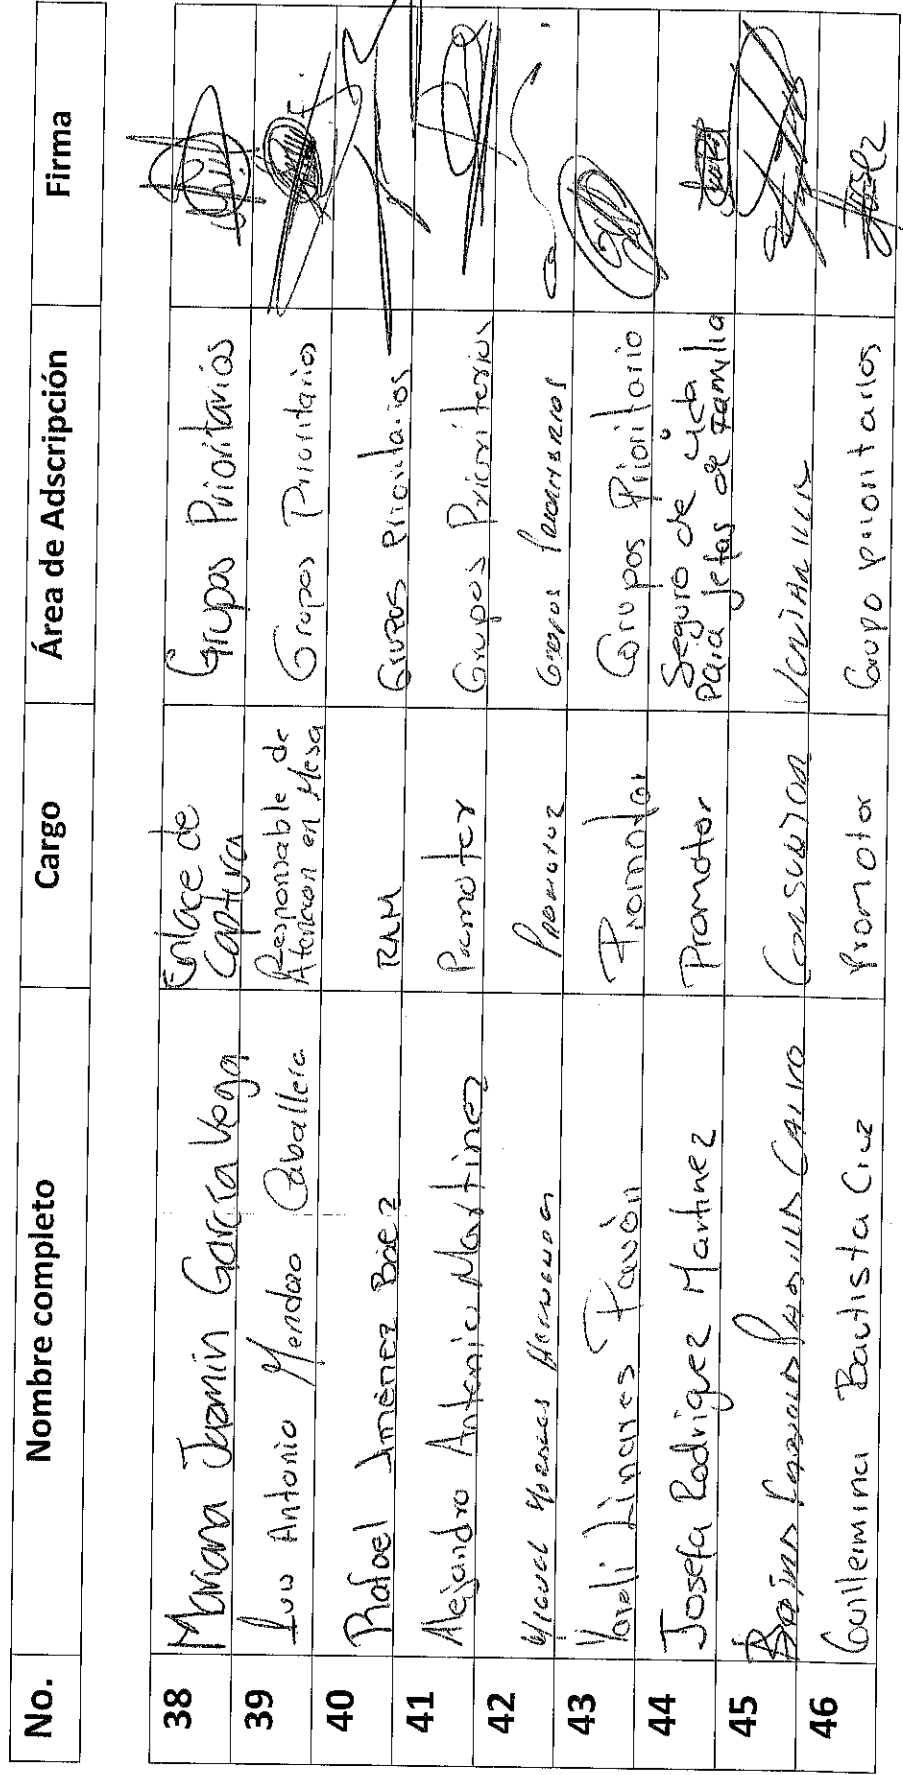 No. Nombre completo Cargo Área de Adscripción Firma
38 Mariana Jazmin García Vega Enlace de Captura Grupos Prioritarios
39 Luis Antonio Mendao Caballero Responsable de Atencion en Mesa Grupos Prioritarios
40 Rafael Jiménez Báez RAM Grupos Prioritarios
41 Alejandro Antonio Martinez Promotor Grupos Prioritarios
42 Miguel Hernandez Promotor Grupos Prioritarios
43 Yareli Linares Pavón Promotor Grupos Prioritario
44 Josefa Rodriguez Martinez Promotor Seguro de vida para jefas de Familia
45 Castro Consultor
46 Guillermina Bautista Cruz Promotor Grupo prioritarios